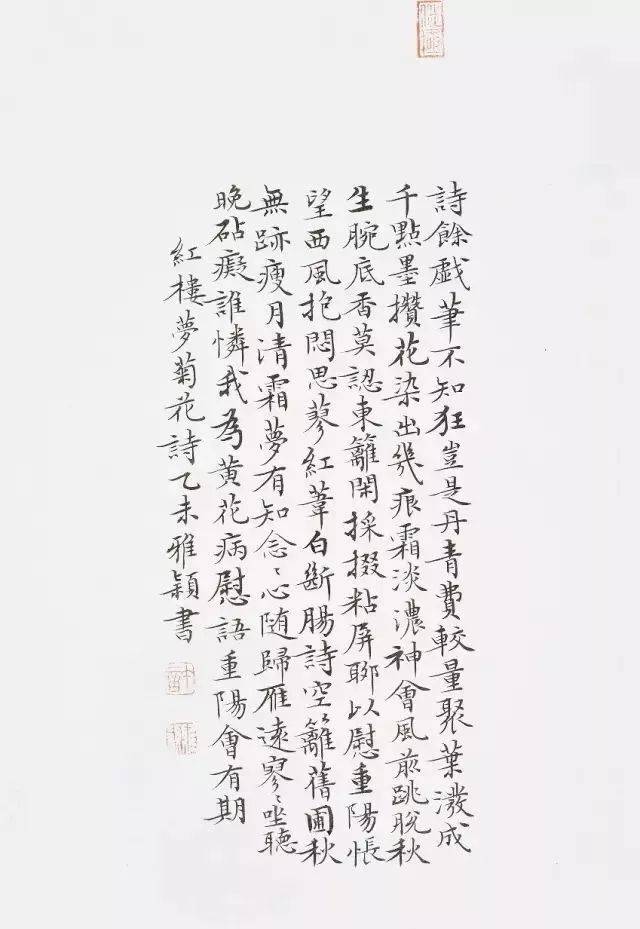 詩餘戲筆不知狂豈是丹青費較量聚葉潑成
千點墨攢花染出幾痕霜淡濃神會風前跳脫秋
生腕底香莫認東籬閑採掇粘屏聊以慰重陽悵
望西風抱悶思蓼紅葦白斷腸詩空籬舊圃秋
無跡瘦月清霜夢有知念〻心隨歸雁遠寥〻坐聽
晚砧癡誰憐我為黃花病慰語重陽會有期
紅樓夢菊花詩乙未雅穎書